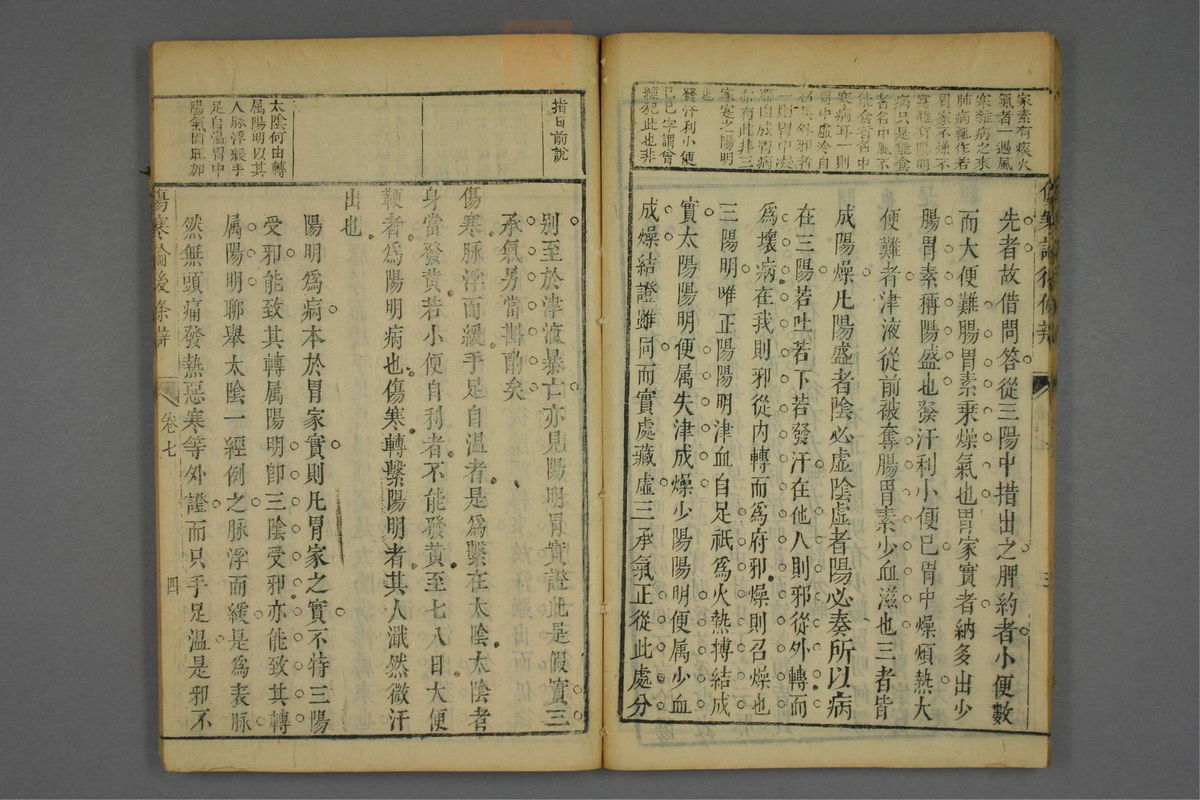 家素有痰火
氣者一遇風
寒雜病之來
肺病雜作若
胃家不燥不
病只是能食
者名中風不
能食者名中
寒病耳一則
胃中虛冷自
家寔之陽明
也
發汗利小便
已已字謂曾
經犯此也非
先者故借問答從三陽中揩出之脾約者小便數
而大便難腸胃素乘燥氣也胃家實者納多出少
腸胃素稱陽盛也發汗利小便已胃中燥煩熱大
便難者津液從前被奪腸胃素少血滋也三者皆
成陽燥凡陽盛者陰必虛陰虛者陽必奏所以病
在三陽若吐若下若發汗在他人則邪從外轉而
為壞病在我則邪從內轉而為府邪燥則召燥也
三陽明唯正陽陽明津血自足祇為火熱搏結成
實太陽陽明便属失津成燥少陽陽明便属少血
成燥結證雖同而實處藏虛三承氣正從此處分
指目前說
太陰何由轉
属陽明以其
人脉浮緩手
足自溫胃中
陽氣固旺加
別至於津液暴亡亦見陽明胃實證此是假實三
承氣另當斟酌矣
傷寒脉浮而緩手足自温者是為繫在太陰太陰者
身當發黃若小便自利者不能發黃至七八日大便
鞕者為陽明病也傷寒轉繫陽明者其人濈然微汗
出也
陽明為病本於胃家實則凡胃家之實不特三陽
受邪能致其轉属陽明卽三陰受邪亦能致其轉
属陽明聊舉太陰一經例之脉浮而緩是為表脉
然無頭痛發熱惡寒等外證而只手足温是邪不
傷寒論後條辨
卷七
四